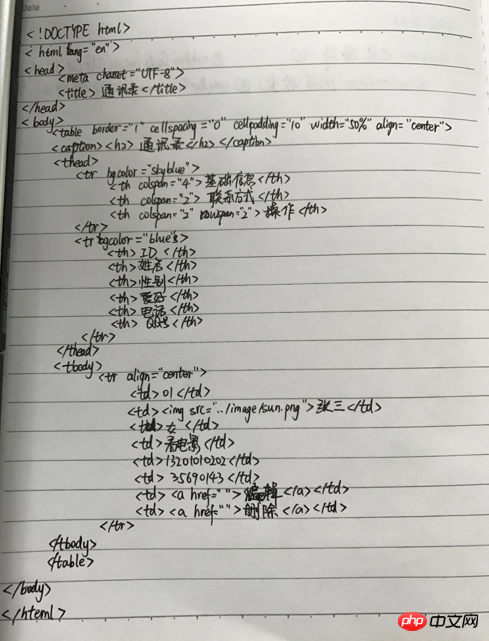 Date
<!DOCTYPE html>
<html lang="en">
<head>
<meta charset="UTF-8">
<title>通讯录</title>
</head>
<body>
<table border="1" cellspacing="0" cellpadding="10" width="50%" align="center">
<caption><h2>通讯录</h2></caption>
<thead>
<tr bgcolor="skyblue">
<th colspan="4">基础信息</th>
<th colspan="2">联系方式</th>
<th colspan="2" rowspan="2">操作</th>
</tr>
<tr bgcolor="blue">
<th>ID</th>
<th>姓名</th>
<th>性别</th>
<th>爱好</th>
<th>电话</th>
<th>QQ号</th>
</tr>
</thead>
<tbody>
<tr align="center">
<td>01</td>
<td><img src="../image/sun.png">张三</td>
<td>女</td>
<td>看电影</td>
<td>13201010202</td>
<td>35690143</td>
<td><a href="">编辑</a></td>
<td><a href="">删除</a></td>
</tr>
</tbody>
</table>
</body>
</html>
php中文网